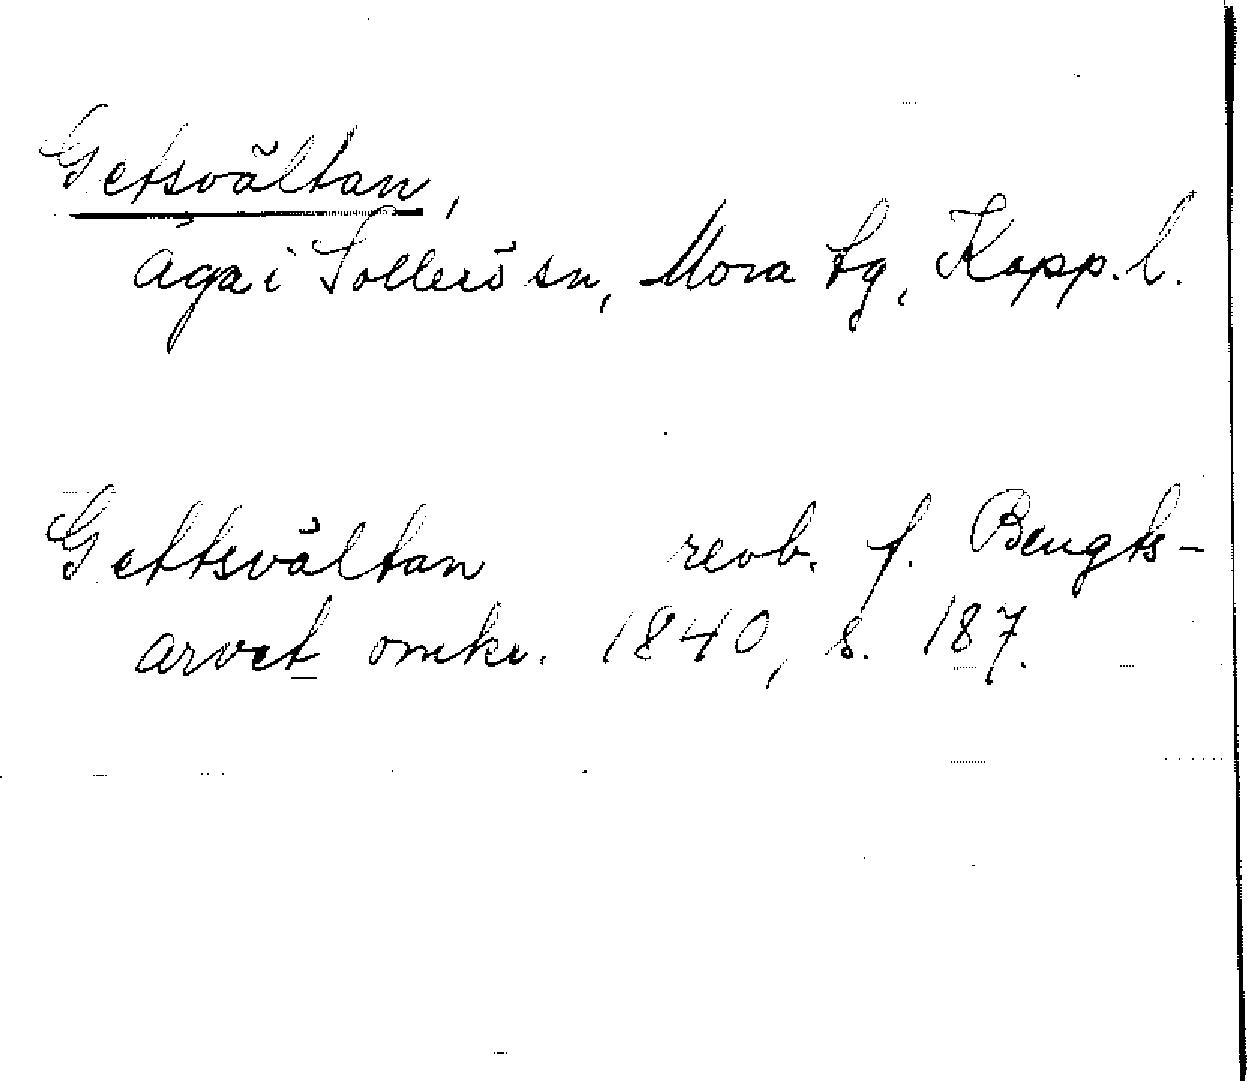 Getsvältan,
äga i Sollerö sn, Mora tg, Kopp. l.
Gettsvältan revb. f. Bengts-
arvet omkr. 1840, s. 187.